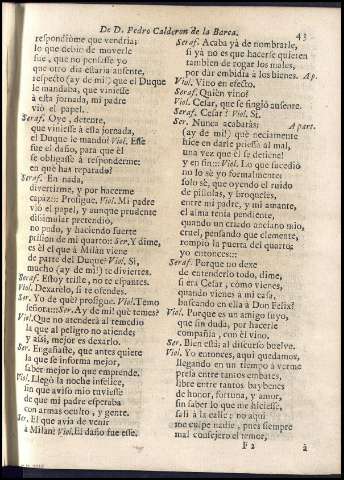 De D. Pedro Calderon de la Barca.
43
respondiòme que vendria;
lo que debiò de moverle
fue, que no pensasse yo
que otro dia estaria ausente,
respecto (ay de mi!) que el Duque
le mandaba, que viniesse
à esta jornada, mi padre
viò el papel.
Seraf. Oye, detente,
que viniesse à esta jornada,
el Duque le mandò? Viol. Esse
fue el daño, para que èl
se obligasse à responderme:
en què has reparado?
Seraf. En nada,
divertirme, y por hacerme
capaz::: Prosigue. Viol. Mi padre
viò el papel, y aunque prudente
dissimular pretendiò,
no pudo, y haciendo fuerte
prision de mi quarto::: Ser. Y dime,
es èl el que à Milàn viene
de parte del Duque? Viol. Si,
mucho (ay de mi!) te diviertes.
Seraf. Estoy triste, no te espantes.
Viol. Dexarèlo, si te ofendes.
Ser. Yo de què? prosigue. Viol. Temo
señora::: Ser. Ay de mi! què temes?
Viol. Que no atenderà al remedio
la que al peligro no atiende;
y assi, mejor es dexarlo.
Ser. Engañaste, que antes quiere
la que se informa mejor,
saber mejor lo que emprende.
Viol. Llegò la noche infelice,
sin que aviso mio tuviesse
de que mi padre esperaba
con armas oculto, y gente.
Ser. El que avia de venir
à Milàn? Viol. El daño fue esse.
Seraf. Acaba yà de nombrarle,
si yà no es que hacerse quieren
tambien de rogar los males,
por dar embidia à los bienes. Ap.
Viol. Vino en efecto.
Seraf. Quien vino?
Viol. Cesar, que se fingiò ausente.
Seraf. Cesar? Viol. Si.
Ser. Nunca acabaràs: A parte.
(ay de mi!) què neciamente
hice en darle priessa al mal,
una vez que èl se detiene!
y en fin::: Viol. Lo que sucediò
no lo sè yo formalmente
solo sè, que oyendo el ruido
de pistolas, y broqueles,
entre mi padre, y mi amante,
el alma tenia pendiente,
quando un criado anciano mio,
cruel, pensando que clemente,
rompiò la puerta del quarto;
yo entonces:::
Seraf. Porque no dexe
de entenderlo todo, dime,
si era Cesar, còmo vienes,
quando vienes à mi casa,
buscando en ella à Don Felix?
Viol. Porque es un amigo suyo,
que sin duda, por hacerle
compañia, con èl vino.
Ser. Bien està; al discurso buelve.
Viol. Yo entonces, aqui quedamos,
llegando en un tiempo à verme
presa entre tantos embates,
libre entre tantos baybenes
de honor, fortuna, y amor,
sin saber lo que me hiciesse,
salì à la calle; no aqui
me culpe nadie, pues siempre
mal consejero el temor,
F 2
à